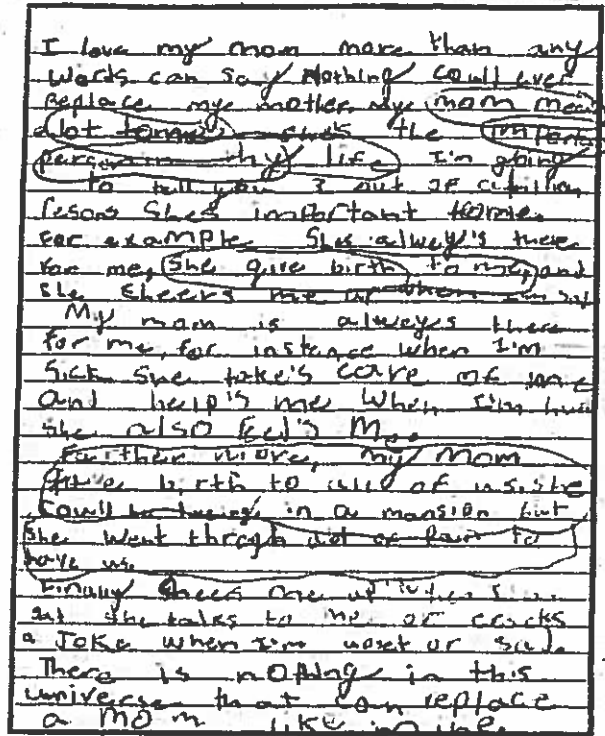 I love my mom more than any
words can say Nothing could ever
Replace my mother. My mom mea
a lot to me she's the importa
person in my life I'm going
to tell you 3 out of a million
resons She's important to me.
For example She's alway's there
for me, she give birth to me, and
she cheers me up when I'm
My mom is alwayes there
for me, for instance when I'm
Sick She take's care of me
and help's me when I'm
she also feed's me.
Farther more, my mom
give birth to all of us, she
could in a mansion but
she went throgh alot of Pain to
have us.
Finally Sheers me up
she talks to me or cracks
a Joke when I'm upset or sad.
There is nothing in this
universe that can replace
a mom like